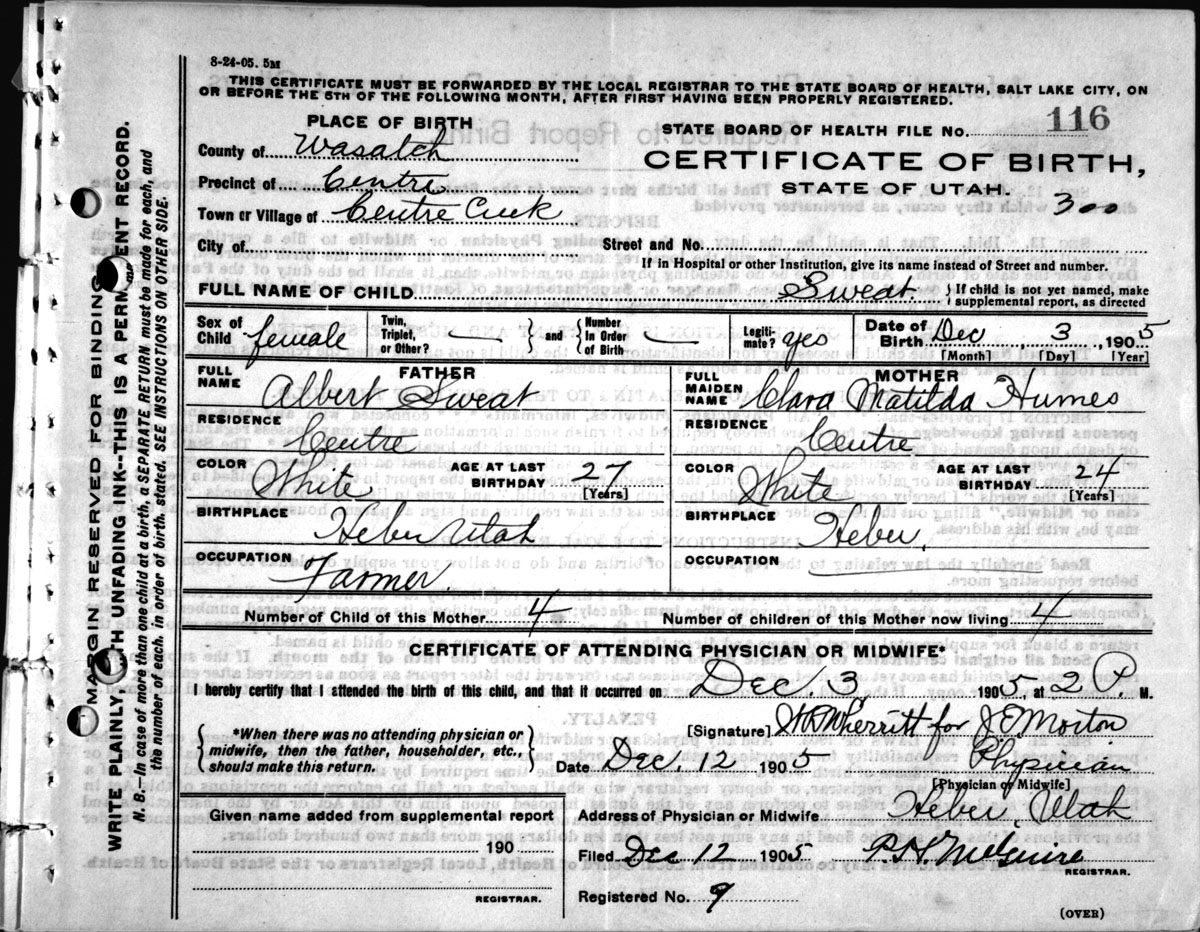 8-24-05. 5M
THIS CERTIFICATE MUST BE FORWARDED BY THE LOCAL REGISTRAR TO THE STATE BOARD OF HEALTH, SALT LAKE CITY, ON
OR BEFORE THE 5TH OF THE FOLLOWING MONTH, AFTER FIRST HAVING BEEN PROPERLY REGISTERED.
PLACE OF BIRTH
STATE BOARD OF HEALTH FILE NO. 116
County of Wasatch
CERTIFICATE OF BIRTH,
Precinct of Centre
STATE OF UTAH.
Town or Village of Centre Creek
300
City of Street and No.
If in Hospital or other Institution, give its name instead of Street and number.
FULL NAME OF CHILD Sweat } If child is not yet named, make supplemental report, as directed
Sex of Child female Twin, Triplet, or Other? — } and { Number In Order of Birth — Legitimate? yes Date of Birth Dec 3, 1905
[Month] [Day] [Year]
FATHER
FULL NAME Albert Sweat
RESIDENCE Centre
COLOR White AGE AT LAST BIRTHDAY 27 [Years]
BIRTHPLACE Heber Utah
OCCUPATION Farmer
MOTHER
FULL MAIDEN NAME Clara Matilda Humes
RESIDENCE Centre
COLOR White AGE AT LAST BIRTHDAY 24 [Years]
BIRTHPLACE Heber.
OCCUPATION —
Number of Child of this Mother 4 Number of children of this Mother now living 4
CERTIFICATE OF ATTENDING PHYSICIAN OR MIDWIFE*
I hereby certify that I attended the birth of this child, and that it occurred on Dec. 3, 1905, at 2 P. M.
{ *When there was no attending physician or midwife, then the father, householder, etc., should make this return. }
[Signature] for J E Morton
Date Dec 12 1905 Physician
[Physician or Midwife]
Given name added from supplemental report
Address of Physician or Midwife Heber, Utah
190
Filed Dec 12 1905 P. H. McGuire
REGISTRAR.
REGISTRAR.
Registered No. 9
(OVER)
MARGIN RESERVED FOR BINDING
WRITE PLAINLY, WITH UNFADING INK--THIS IS A PERMANENT RECORD.
N. B. In case of more than one child at a birth, a SEPARATE RETURN must be made for each, and
the number of each. in order of birth stated. SEE INSTRUCTIONS ON OTHER SIDE.